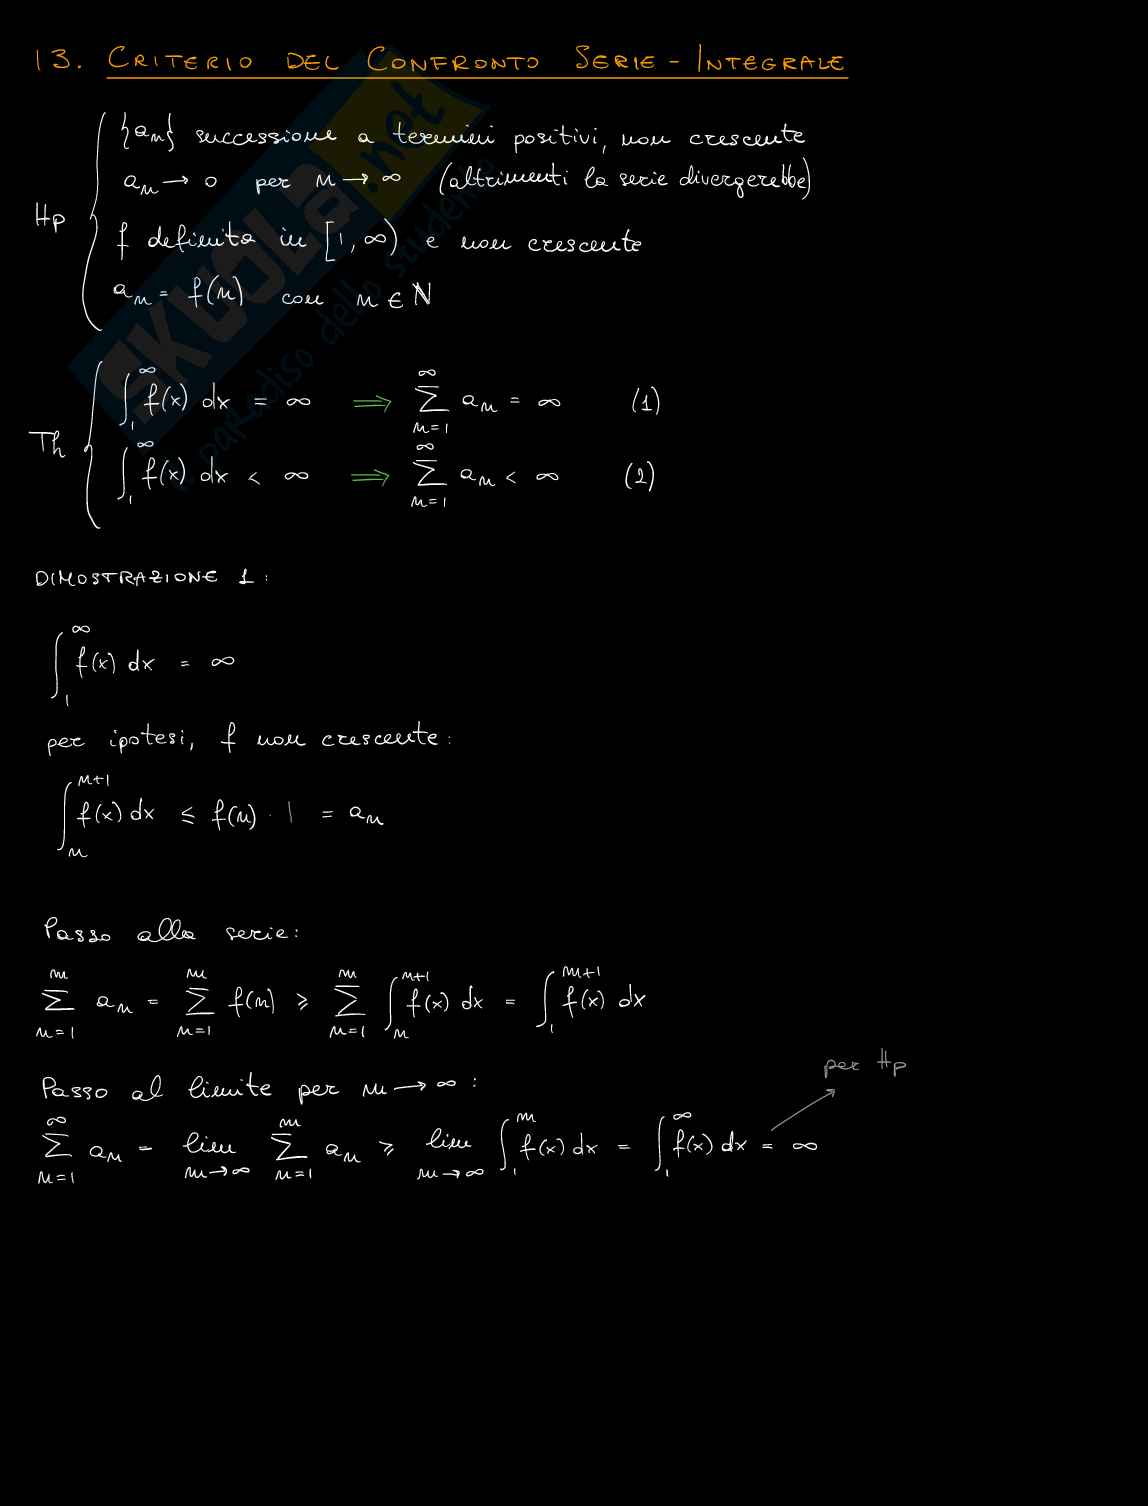 13. CRITERIO DEL CONFRONTO SERIE - INTEGRALE
Hp
{aₙ} successione a termini positivi, non crescente
aₙ → 0 per n → ∞ (altrimenti la serie divergerebbe)
f definita in [1, ∞) e non crescente
aₙ = f(n) con n ∈ ℕ
Th
∫₁^∞ f(x) dx = ∞ ⟹ ∑_{n=1}^∞ aₙ = ∞ (1)
∫₁^∞ f(x) dx < ∞ ⟹ ∑_{n=1}^∞ aₙ < ∞ (2)
DIMOSTRAZIONE 1:
∫₁^∞ f(x) dx = ∞
per ipotesi, f non crescente:
∫ₙ^{n+1} f(x) dx ≤ f(n) · 1 = aₙ
Passo alla serie:
∑_{n=1}^m aₙ = ∑_{n=1}^m f(n) ≥ ∑_{n=1}^m ∫ₙ^{n+1} f(x) dx = ∫₁^{m+1} f(x) dx
Passo al limite per m → ∞ :
per Hp
∑_{n=1}^∞ aₙ = lim_{m→∞} ∑_{n=1}^m aₙ ≥ lim_{m→∞} ∫₁^m f(x) dx = ∫₁^∞ f(x) dx = ∞
SKUOLA.net
paradiso dello studente